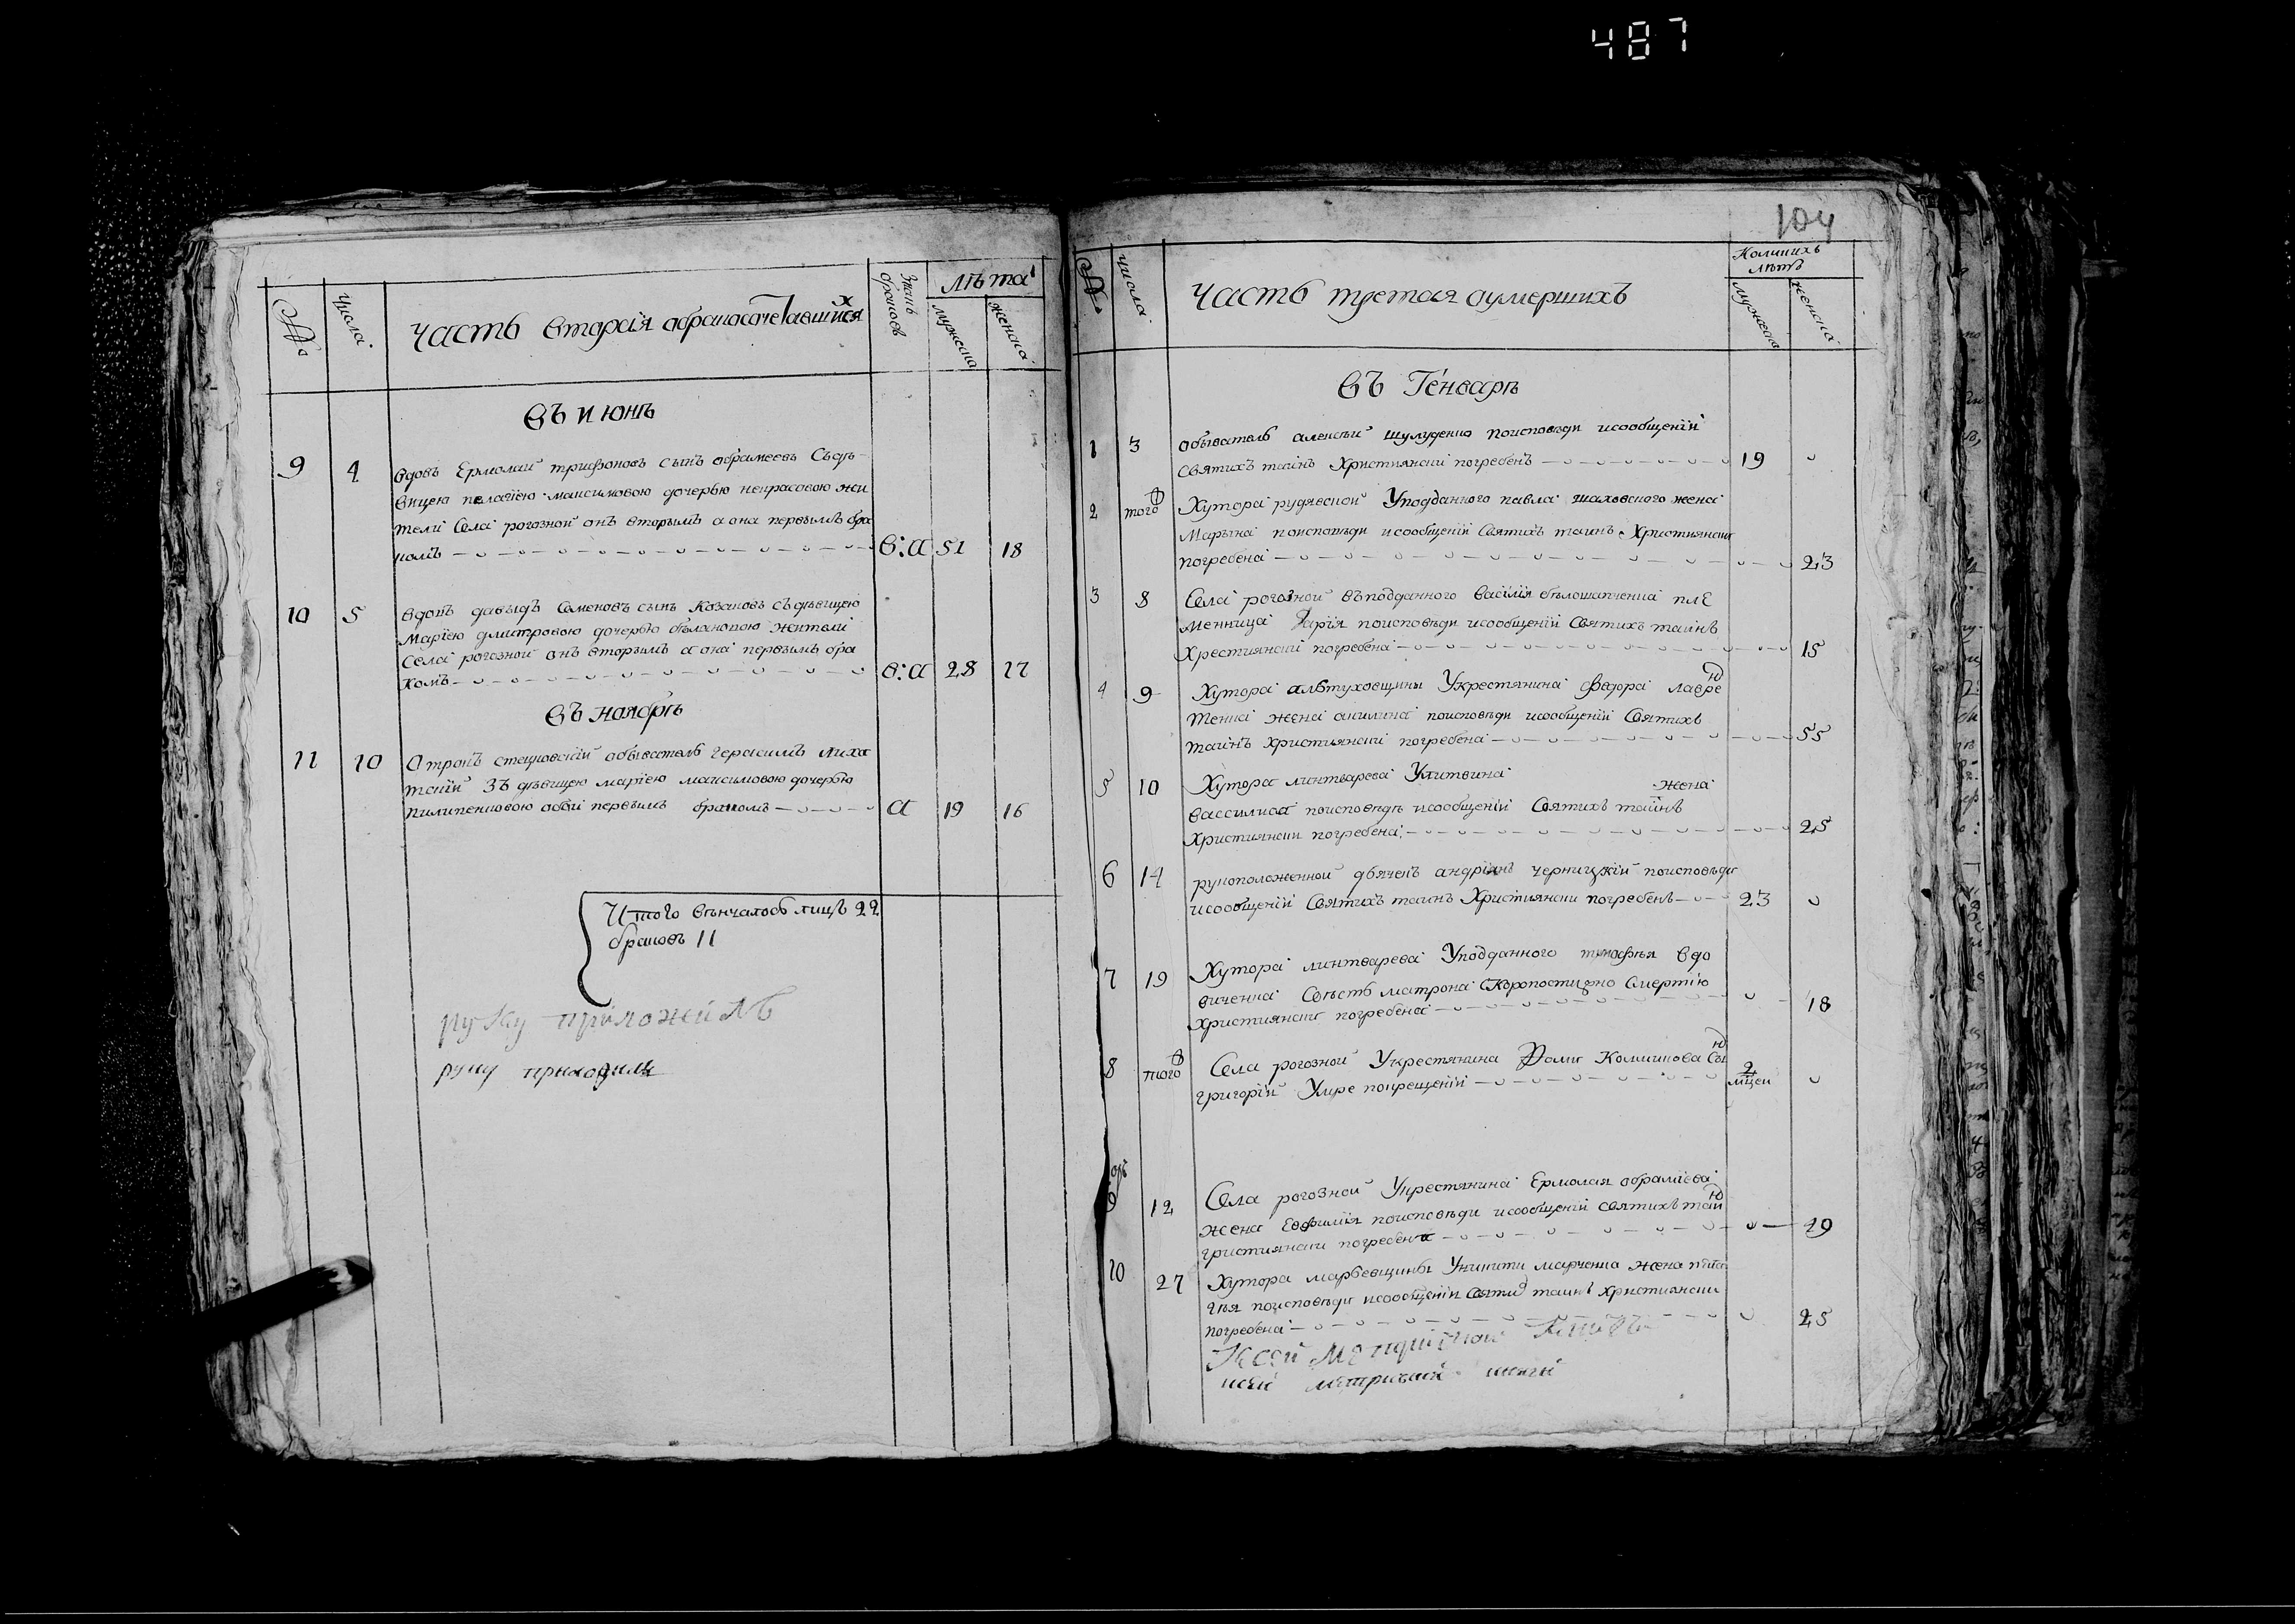 487
№
Числа
Часть вторая обракосочетавшихся
Знанъ браковъ
лѣта
мужеска
женска
въ июнѣ
9 4 вдовъ Ермолай трифоновъ сынъ абрамеевъ Съдѣ
вицею пелагіею максимовою дочерью некрасовою жи
тели Села рогозной онъ вторымъ а она первымъ бра
комъ в: а 51 18
10 5 вдовъ давыдъ Семеновъ сынъ Козаковъ съдѣвицею
Маріею дмитровою дочерью жители
Села рогозной онъ вторымъ а она первымъ бра
комъ в: а 28 22
въ ноябрѣ
11 10 Отрокъ обыватель герасимъ лиха
тскій Зъ дѣвицею маріею максимовою дочерью
пилипенковою оба первымъ бракомъ а 19 16
Итого вѣнчалось лицъ 22
браковъ 11
руку приложилъ
руку
104
№
Числа
Часть третая оумершихъ
Коликихъ лѣтъ
мужеска
женска
въ Генварѣ
1 3 обыватель алексѣй шулуденко поисповѣди исообщеніи
святихъ таинъ Християнски погребенъ 19
2 того Хутора руднвской Уподданного павла шаховского жена
Марына поисповѣди исообщеніи Святихъ таинъ Християнски
погребена 23
3 8 Села рогозной въподданного василія бѣлошапченка пле
менница дарія поисповѣди исообщеніи Святихъ таинъ
Хрестиянски погребена 15
4 9 Хутора алътуховщины Укрестянина федора лавре
тенка жена акилина поисповѣди исообщеніи Святихъ
таинъ Християнски погребена 55
5 10 Хутора линтварева Улитвина жена
вассилиса поисповѣдѣ исообщеніи Святихъ таинъ
Християнски погребена 25
6 14 рукоположенной дьячекъ андріянъ черницкій поисповѣди
исообщеніи Святихъ таинъ Християнски погребенъ 23
7 19 Хутора линтварева Уподданного тимофѣя вдо
виченка невѣстъ матрона Скоропостижно Смертію
християнски погребена 18
8 того Села рогозной Укрестянина Фоми Коминова Сынъ
григорій Умре покрещеніи 2 мцеи
9 12 Села рогозной Укрестянина Ермолая обраміева
жена Евфимія поисповѣди исообщеніи святихъ таин
християнски погребена 29
10 27 Хутора марьевщины Уникити марченка жена пела
гѣя поисповѣди исообщеніи Святи таинъ Християнски
погребена 25
Ксей метричной книгѣ
ксей метрикной книги